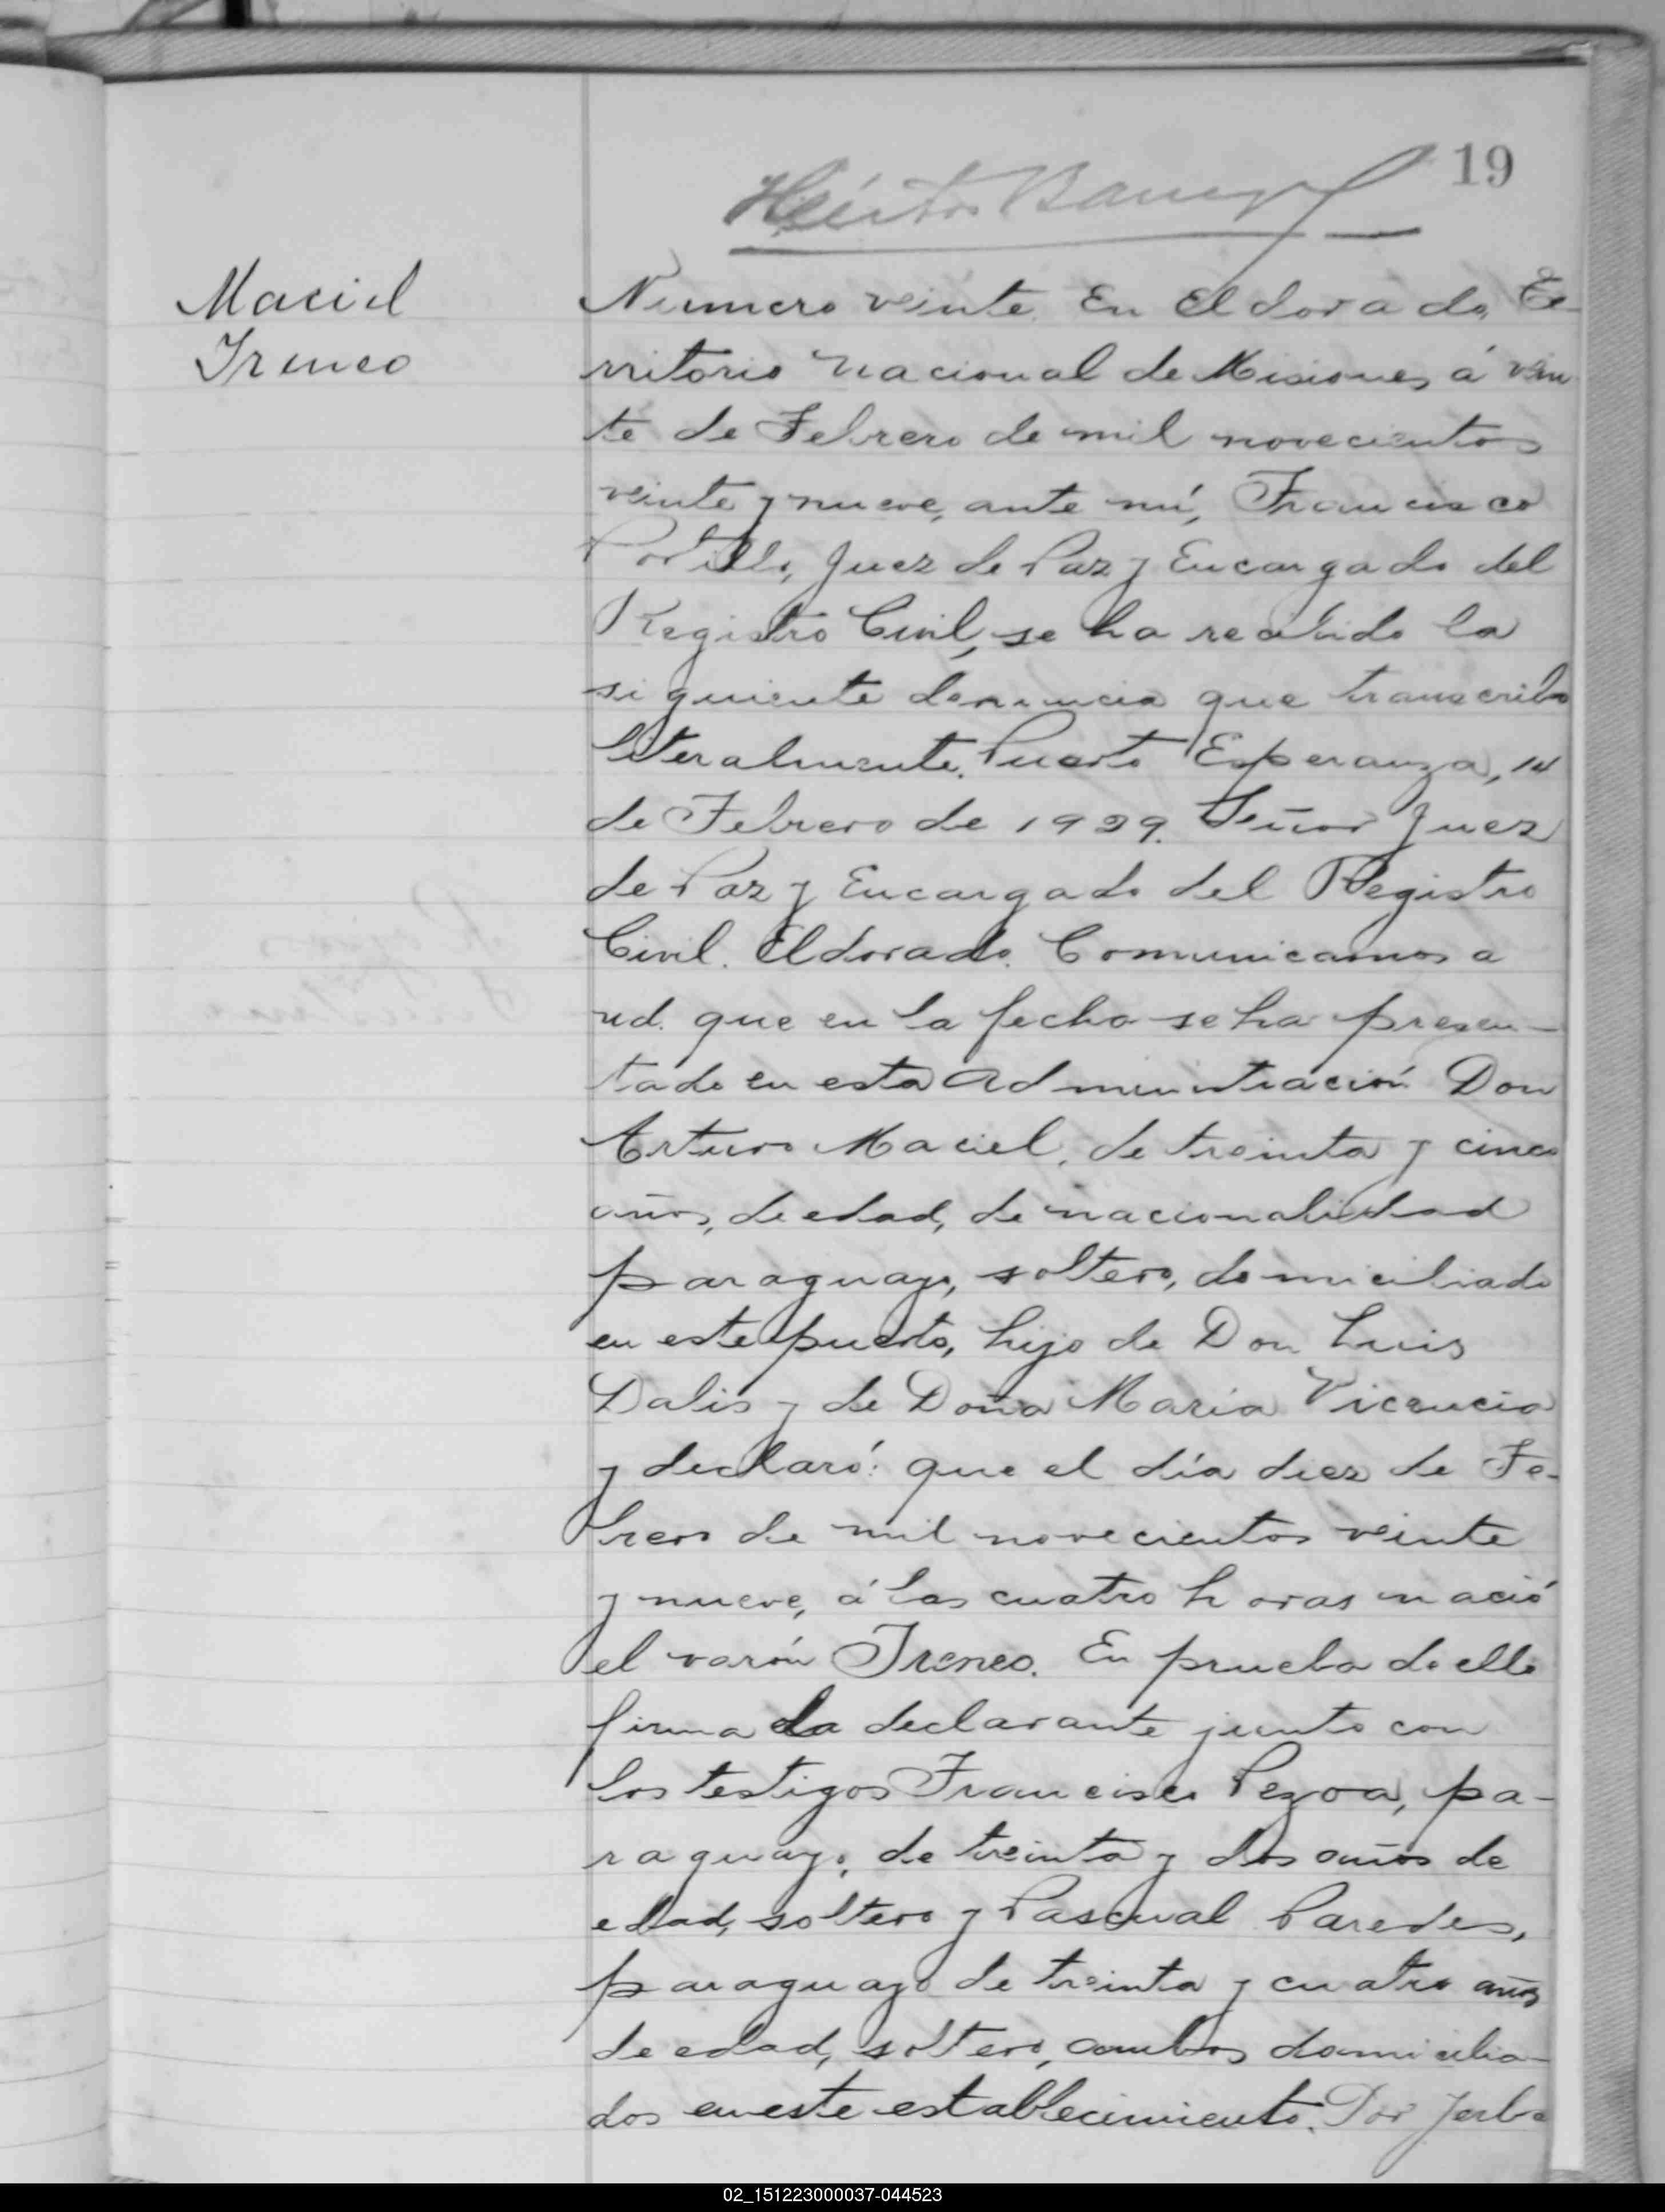 19
Héctor
Maciel
Ireneo
Numero veinte. En Eldorado, Te-
rritorio Nacional de Misiones, á vein
te de Febrero de mil novecientos
veinte y nueve, ante mí, Francisco
Portillo, Juez de Paz y Encargado del
Registro Civil, se ha recibido la
siguiente denuncia que transcribo
literalmente. Puerto Esperanza, 14
de Febrero de 1929. Señor Juez
de Paz y Encargado del Registro
Civil. Eldorado. Comunicamos a
ud. que en la fecha se ha presen-
tado en esta Administración Don
Arturo Maciel, de treinta y cinco
años, de edad, de nacionalidad
paraguayo, soltero, domiciliado
en este puerto, hijo de Don Luis
Dalis y de Doña María
y declaró: que el día diez de Fe-
brero de mil novecientos veinte
y nueve, á las cuatro horas nació
el varón Ireneo. En prueba de ello
firma la declarante junto con
los testigos Francisco Pezoa, pa-
raguayo, de treinta y dos años de
edad, soltero y Pascual Paredes,
paraguayo de treinta y cuatro años
de edad, soltero, ambos domicilia-
dos en este establecimiento. Por Yerba
02_151223000037-044523